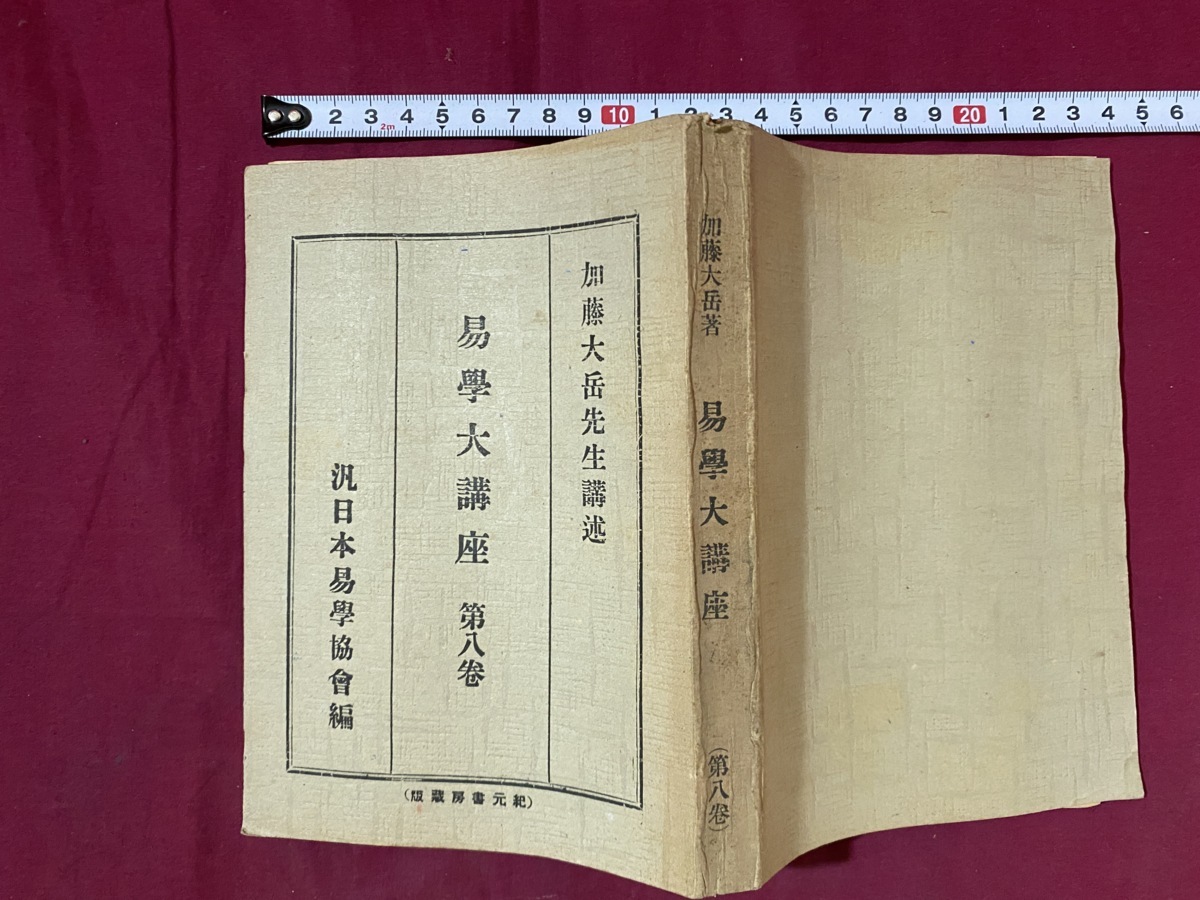 2 3 4 5 6 7 8 9 10 1 2 3 4 5 6 7 8 9 20 1 2 3 4 5 6
2m
加藤大岳先生講述
易學大講座 第八卷
汎日本易學協會編
(紀元書房藏版)
加藤大岳著 易學大講座 (第八卷)